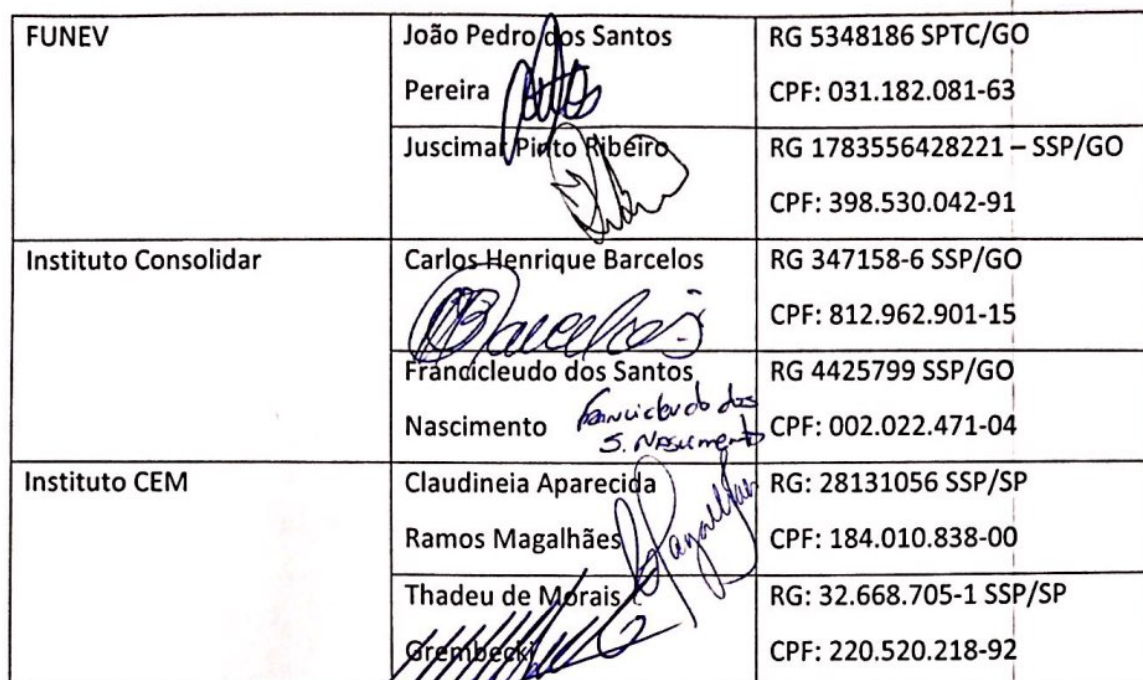 FUNEV
João Pedro dos Santos
Pereira
RG 5348186 SPTC/GO
CPF: 031.182.081-63
Juscimar Pinto Ribeiro
RG 1783556428221 – SSP/GO
CPF: 398.530.042-91
Instituto Consolidar
Carlos Henrique Barcelos
Barcelos
RG 347158-6 SSP/GO
CPF: 812.962.901-15
Francicleudo dos Santos
Nascimento
Francicleudo dos
S. Nascimento
RG 4425799 SSP/GO
CPF: 002.022.471-04
Instituto CEM
Claudineia Aparecida
Ramos Magalhães
RG: 28131056 SSP/SP
CPF: 184.010.838-00
Thadeu de Morais
Grembecki
RG: 32.668.705-1 SSP/SP
CPF: 220.520.218-92